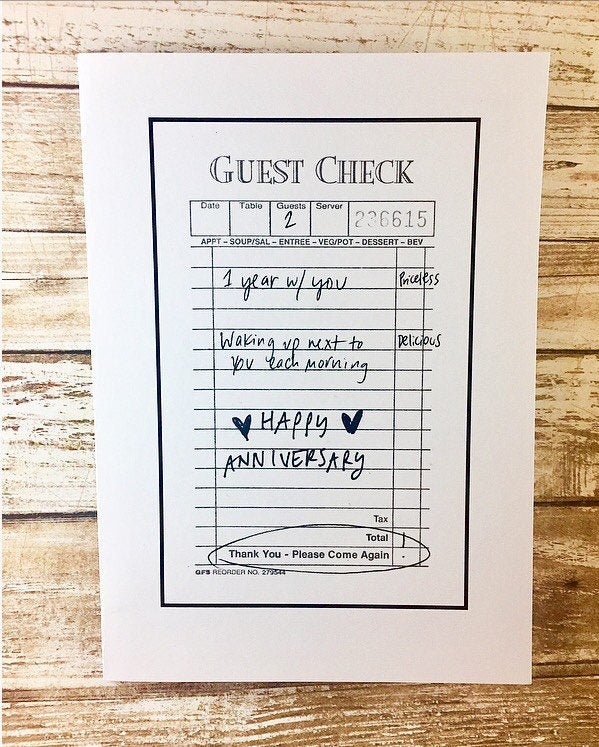 GUEST CHECK
Date Table Guests Server
2 236615
APPT – SOUP/SAL – ENTREE – VEG/POT – DESSERT – BEV
1 year w/ you Priceless
Waking up next to Delicious
you each morning
HAPPY
ANNIVERSARY
Tax
Total
Thank You - Please Come Again
GFS REORDER NO. 279544